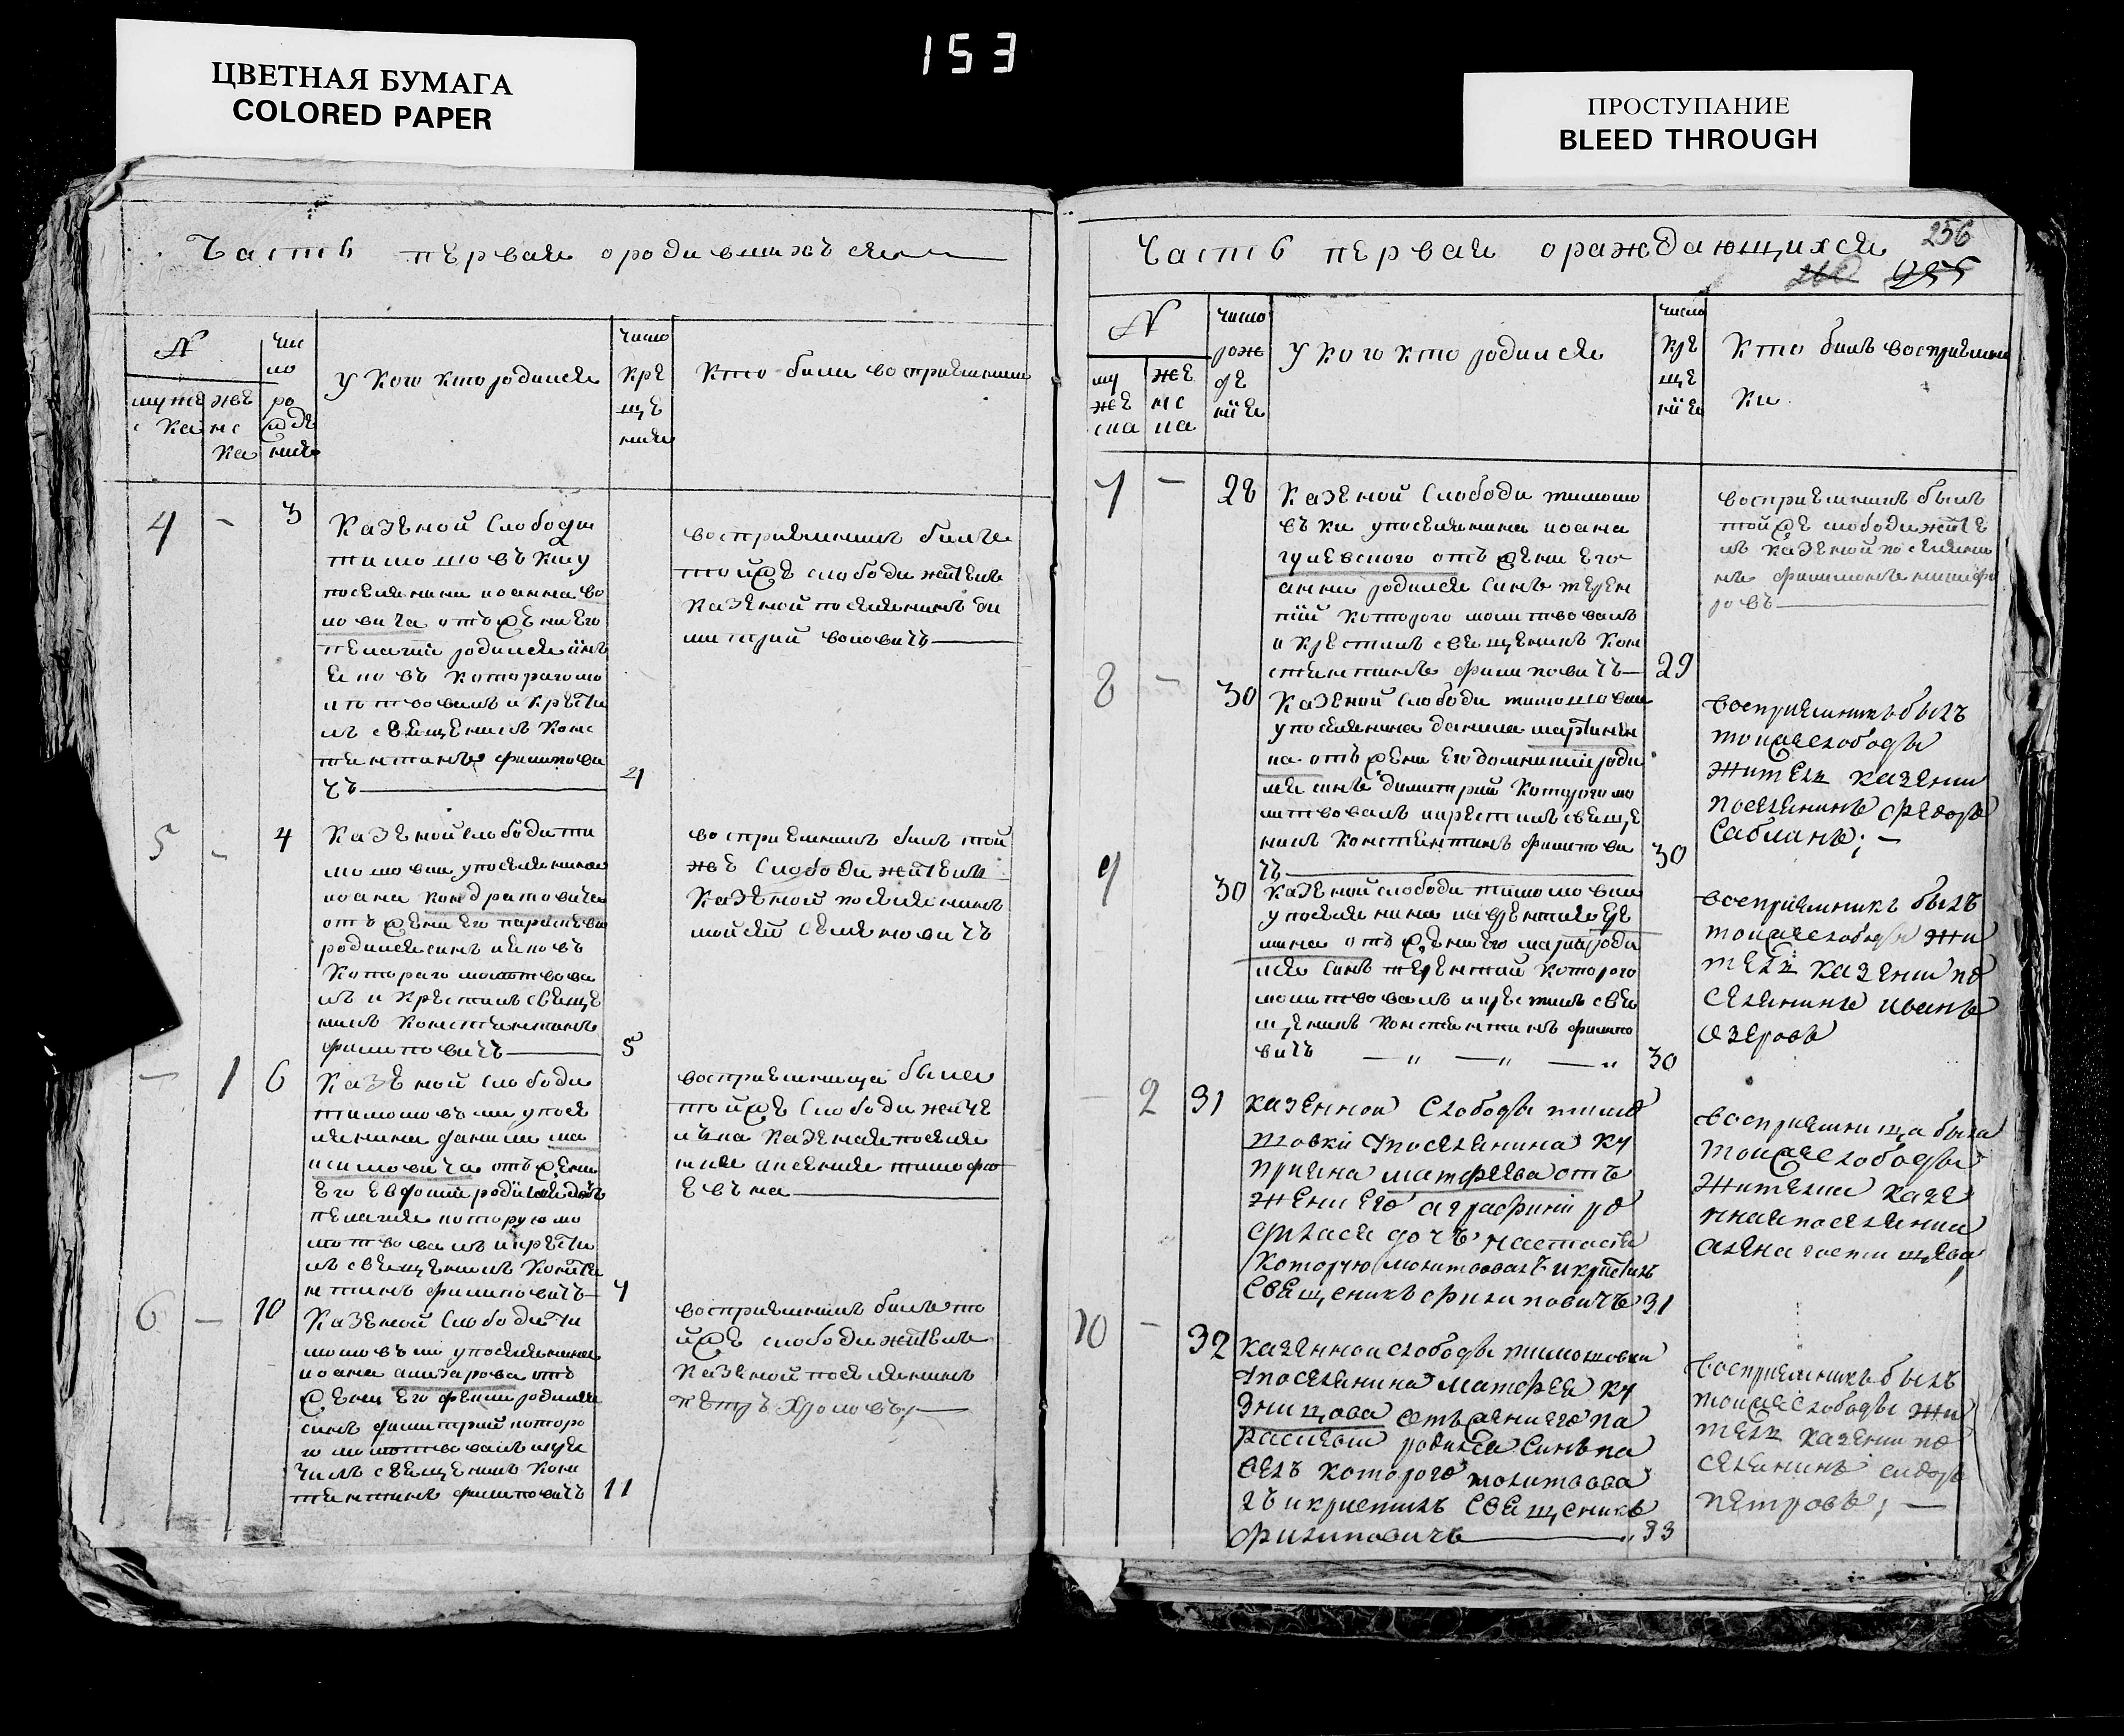 153
ЦВЕТНАЯ БУМАГА
COLORED PAPER
ПРОСТУПАНИЕ
BLEED THROUGH
Часть первая о родившихъся
№
муже
ска
жѣ
нс
ка
чи
ло
ро
жде
ния
у кого кто родился
число
кре
ще
ния
Кто били восприемники
4 - 3
Казеной Слободи
тимошовъки у
поселянина иоанна во
ловича отъ жени его
пелагии родился синъ
яковъ котораго мо
литвовалъ и крести
лъ священикъ Конс
тантинъ филипови
чъ
4
восприемникъ билъ
тойже слободи житель
казеной поселянинъ ди
митрий воловичъ
5 - 4
Казеной слободи ти
мошовки у поселянина
иоана кондратовича
отъ жени его параскеви
родился синъ яковъ
Котораго молитвова
лъ и крестилъ свяще
никъ Константинъ
филиповичъ
5
восприемникъ билъ той
же Слободи житель
Казеной поселянинъ
мойсей семеновичъ
- 1 6
Казеной слободи
тимошовъки у посе
лянина данили ма
ксимовича отъ жени
его евфомии родилась дочь
пелагия которую мо
литвовалъ и крести
лъ священикъ Конста
нтинъ филиповичъ
7
восприемница была
тойже Слободи жите
лька казеная поселя
нка ксения тимофе
евъна
6 - 10
Казеной Слободи ти
мошовъки у поселянина
иоана отъ
жени его родился
синъ димитрий которо
го молитвовалъ
священикъ Конс
тантинъ филиповичъ
11
восприемникъ билъ то
йже слободи житель
казеной поселянинъ
петръ Хромовъ;
Часть первая о раждающихся
256
№
му
же
ска
же
нс
ка
число
рож
де
нїя
у кого кто родился
число
кре
ще
нїя
Кто билъ восприемни
ки
7 - 28
Казеной Слободи тимошо
въки у поселянина иоана
гулевского отъ жени его
анни родился синъ терен
тїй которого молитвовалъ
и крестилъ священикъ Кон
стантинъ филиповичъ
29
восприемникъ былъ
тойже слободи жите
ль казеной поселяни
нъ филимонъ никифо
ровъ
8 - 30
Казеной слободи тимошовки
у поселянина данила мартинен
ка отъ жени его домникии роди
лся синъ димитрий Которого мо
литвовалъ и крестилъ свяще
никъ Константинъ филипови
чъ
30
восприемникъ былъ
тойже слободы
житель казении
поселянинъ федоръ
Саблианъ; —
9 30
казеной слободи тимошовки
у поселянина
отъ жени его марии роди
лся синъ терентий которого
молитвовалъ и крестилъ свя
щеникъ Константинъ филипо
вичъ — „ — „ — „
30
восприемникъ былъ
тойже слободы жи
тель казении по
селянинъ иванъ
озеровъ
- 2 31
казенной слободы тимо
шовки у поселянина ку
прияна матфеева отъ
жени его аграфини ро
дилася дочъ настасия
которую молитвовалъ и крестилъ
священикъ филиповичъ
31
восприемница была
тойже слободы
жителка казе
ная поселянка
алена гостищева
10 - 32
казенной слободы тимошовки
у поселянина матфея ку
знищова отъ жени его па
раскевии родился синъ па
велъ которого молитвова
лъ и крестилъ священикъ
филиповичъ
33
восприемникъ былъ
тойже слободы жи
тель казении по
селянинъ сидоръ
петровъ; —